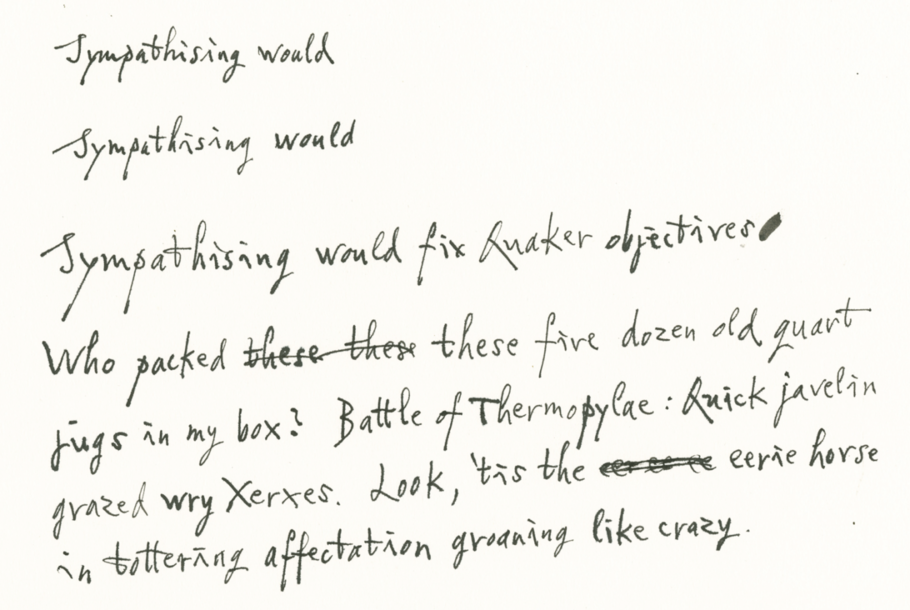 Sympathising would
Sympathising would
Sympathising would fix Quaker objectives
Who packed these these these five dozen old quart
jugs in my box? Battle of Thermopylae: Quick javelin
grazed wry Xerxes. Look, 'tis the eerie horse
in tottering affectation groaning like crazy.